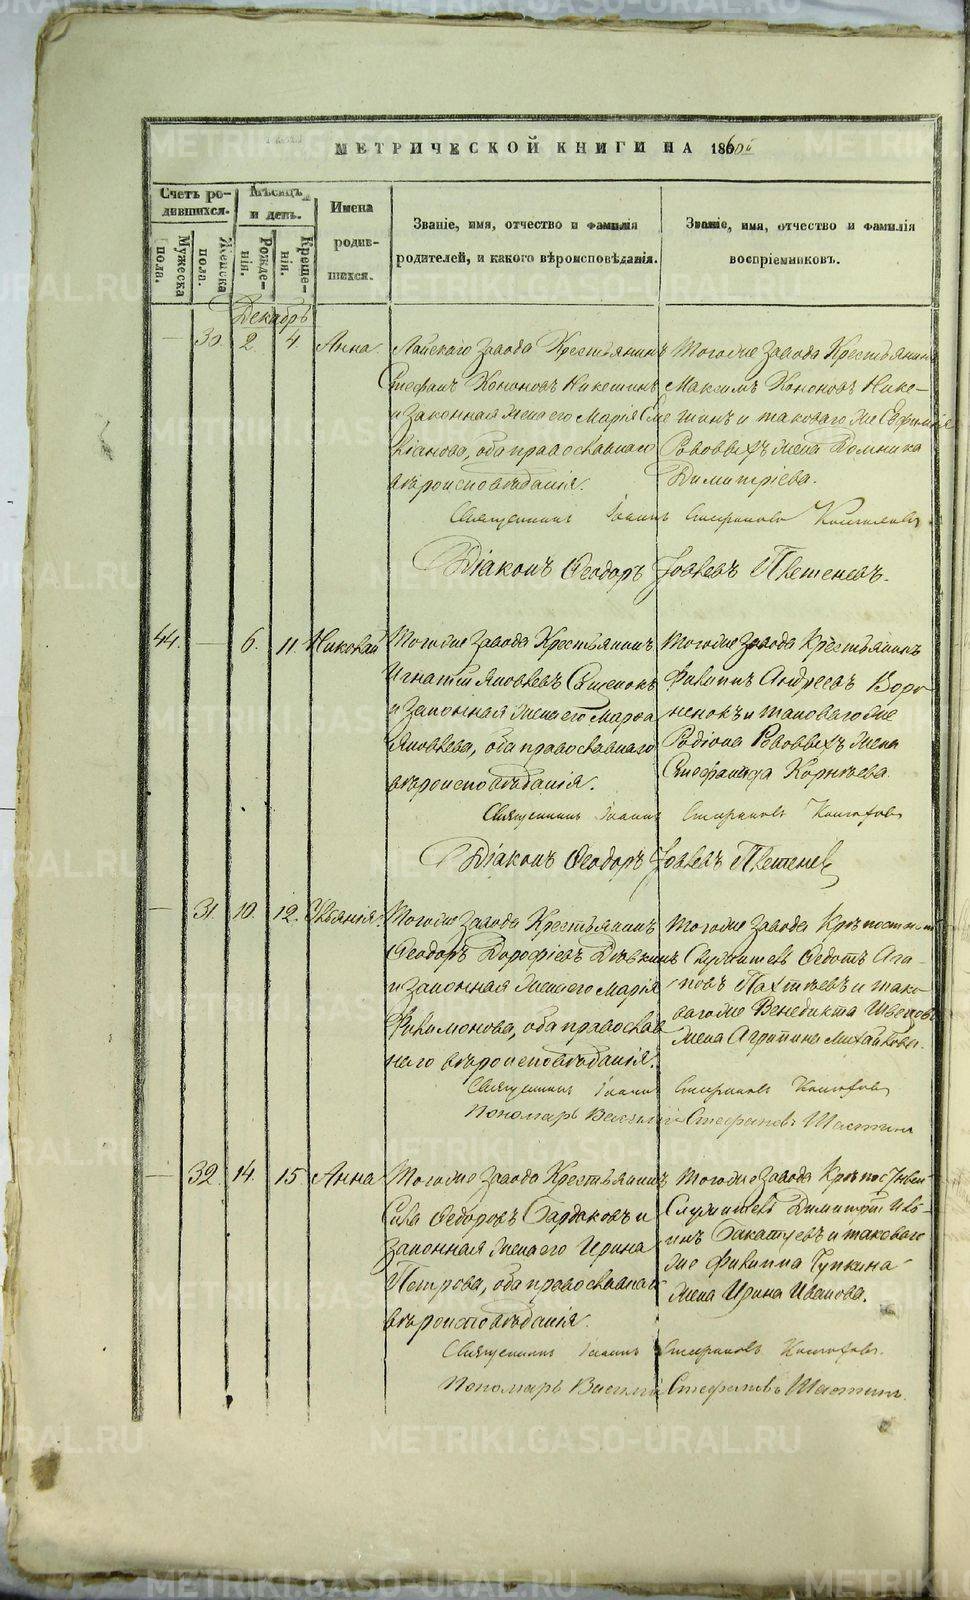 METRIKI.GASO-URAL.RU
МЕТРИЧЕСКОЙ КНИГИ НА 1860й
Счетъ ро-
дившихся.
Мужеска
пола.
Женска
пола.
Мѣсяцъ
и день.
Рожде-
нія.
Креще-
нія.
Имена
родив-
шихся.
Званіе, имя, отчество и фамилія
родителей, и какого вѣроисповѣданія.
Званіе, имя, отчество и фамилія
воспріемниковъ.
Декабрь
— 30. 2. 4. Анна
Лайскаго завода Крестьянинъ
Стефанъ Кононовъ Никешинъ
и законная жена его Марія Сме
оба православнаго
вѣроисповѣданія.
Тогоже завода Крестьянинъ
Максимъ Кононовъ Ники-
шинъ и таковаго же
жена Домника
Димитріева.
Священникъ Іоаннъ Стефановъ
Діаконъ Ѳеодоръ Іовлевъ
44. — 6. 11. Николай
Тогоже завода Крестьянинъ
Игнатій Яковлевъ
и законная жена его Марѳа
Яковлева, оба православнаго
вѣроисповѣданія.
Тогоже завода Крестьянинъ
Филиппъ Андреевъ Воро-
ненокъ и таковаго же
Родіона жена
Стефанида Корнѣева
Священникъ Іоаннъ Стефановъ
Діаконъ Ѳеодоръ Іовлевъ
— 31. 10. 12. Уліянія
Тогоже завода Крестьянинъ
Ѳеодоръ Дороѳіевъ Дѣвкинъ
и законная жена его Марія
Филимонова, оба православ
наго вѣроисповѣданія.
Тогоже завода Крѣпостный
Служитель Ѳедотъ Ага-
повъ и тако-
ваго же Венедикта Швецова
жена Агрипина Михайлова.
Священникъ Іоаннъ Стефановъ
Пономарь Василій Стефановъ
— 32. 14. 15 Анна
Тогоже завода Крестьянинъ
Сила Ѳедоровъ Бардаковъ и
законная жена его Ирина
Петрова, оба православнаго
вѣроисповѣданія.
Тогоже завода Крѣпостный
Служитель Димитрій Иль-
инъ и таковаго
же Филиппа Чупкина
жена Ирина Иванова.
Священникъ Іоаннъ Стефановъ
Пономарь Василій Стефановъ